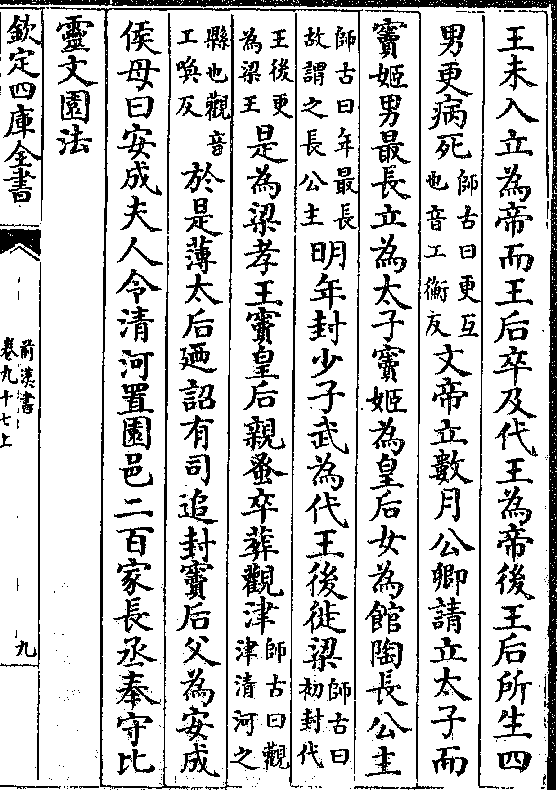 王未入立為帝而王后卒及代王為帝後王后所生四
男更病死師古曰更互也音工衡反文帝立數月公卿請立太子而
竇姬男最長立為太子竇姬為皇后女為館陶長公主
師古曰年最長故謂之長公主明年封少子武為代王後徙梁師古曰初封代
王後更為梁王是為梁孝王竇皇后親蚤卒葬觀津師古曰觀津清河之
縣也觀音工喚反於是薄太后廼詔有司追封竇后父為安成
侯母曰安成夫人令清河置園邑二百家長丞奉守比
靈文園法
欽定四庫全書
前漢書
卷九十七上
九